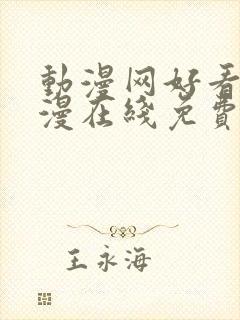 動漫网好看
漫在綫免費
王永海